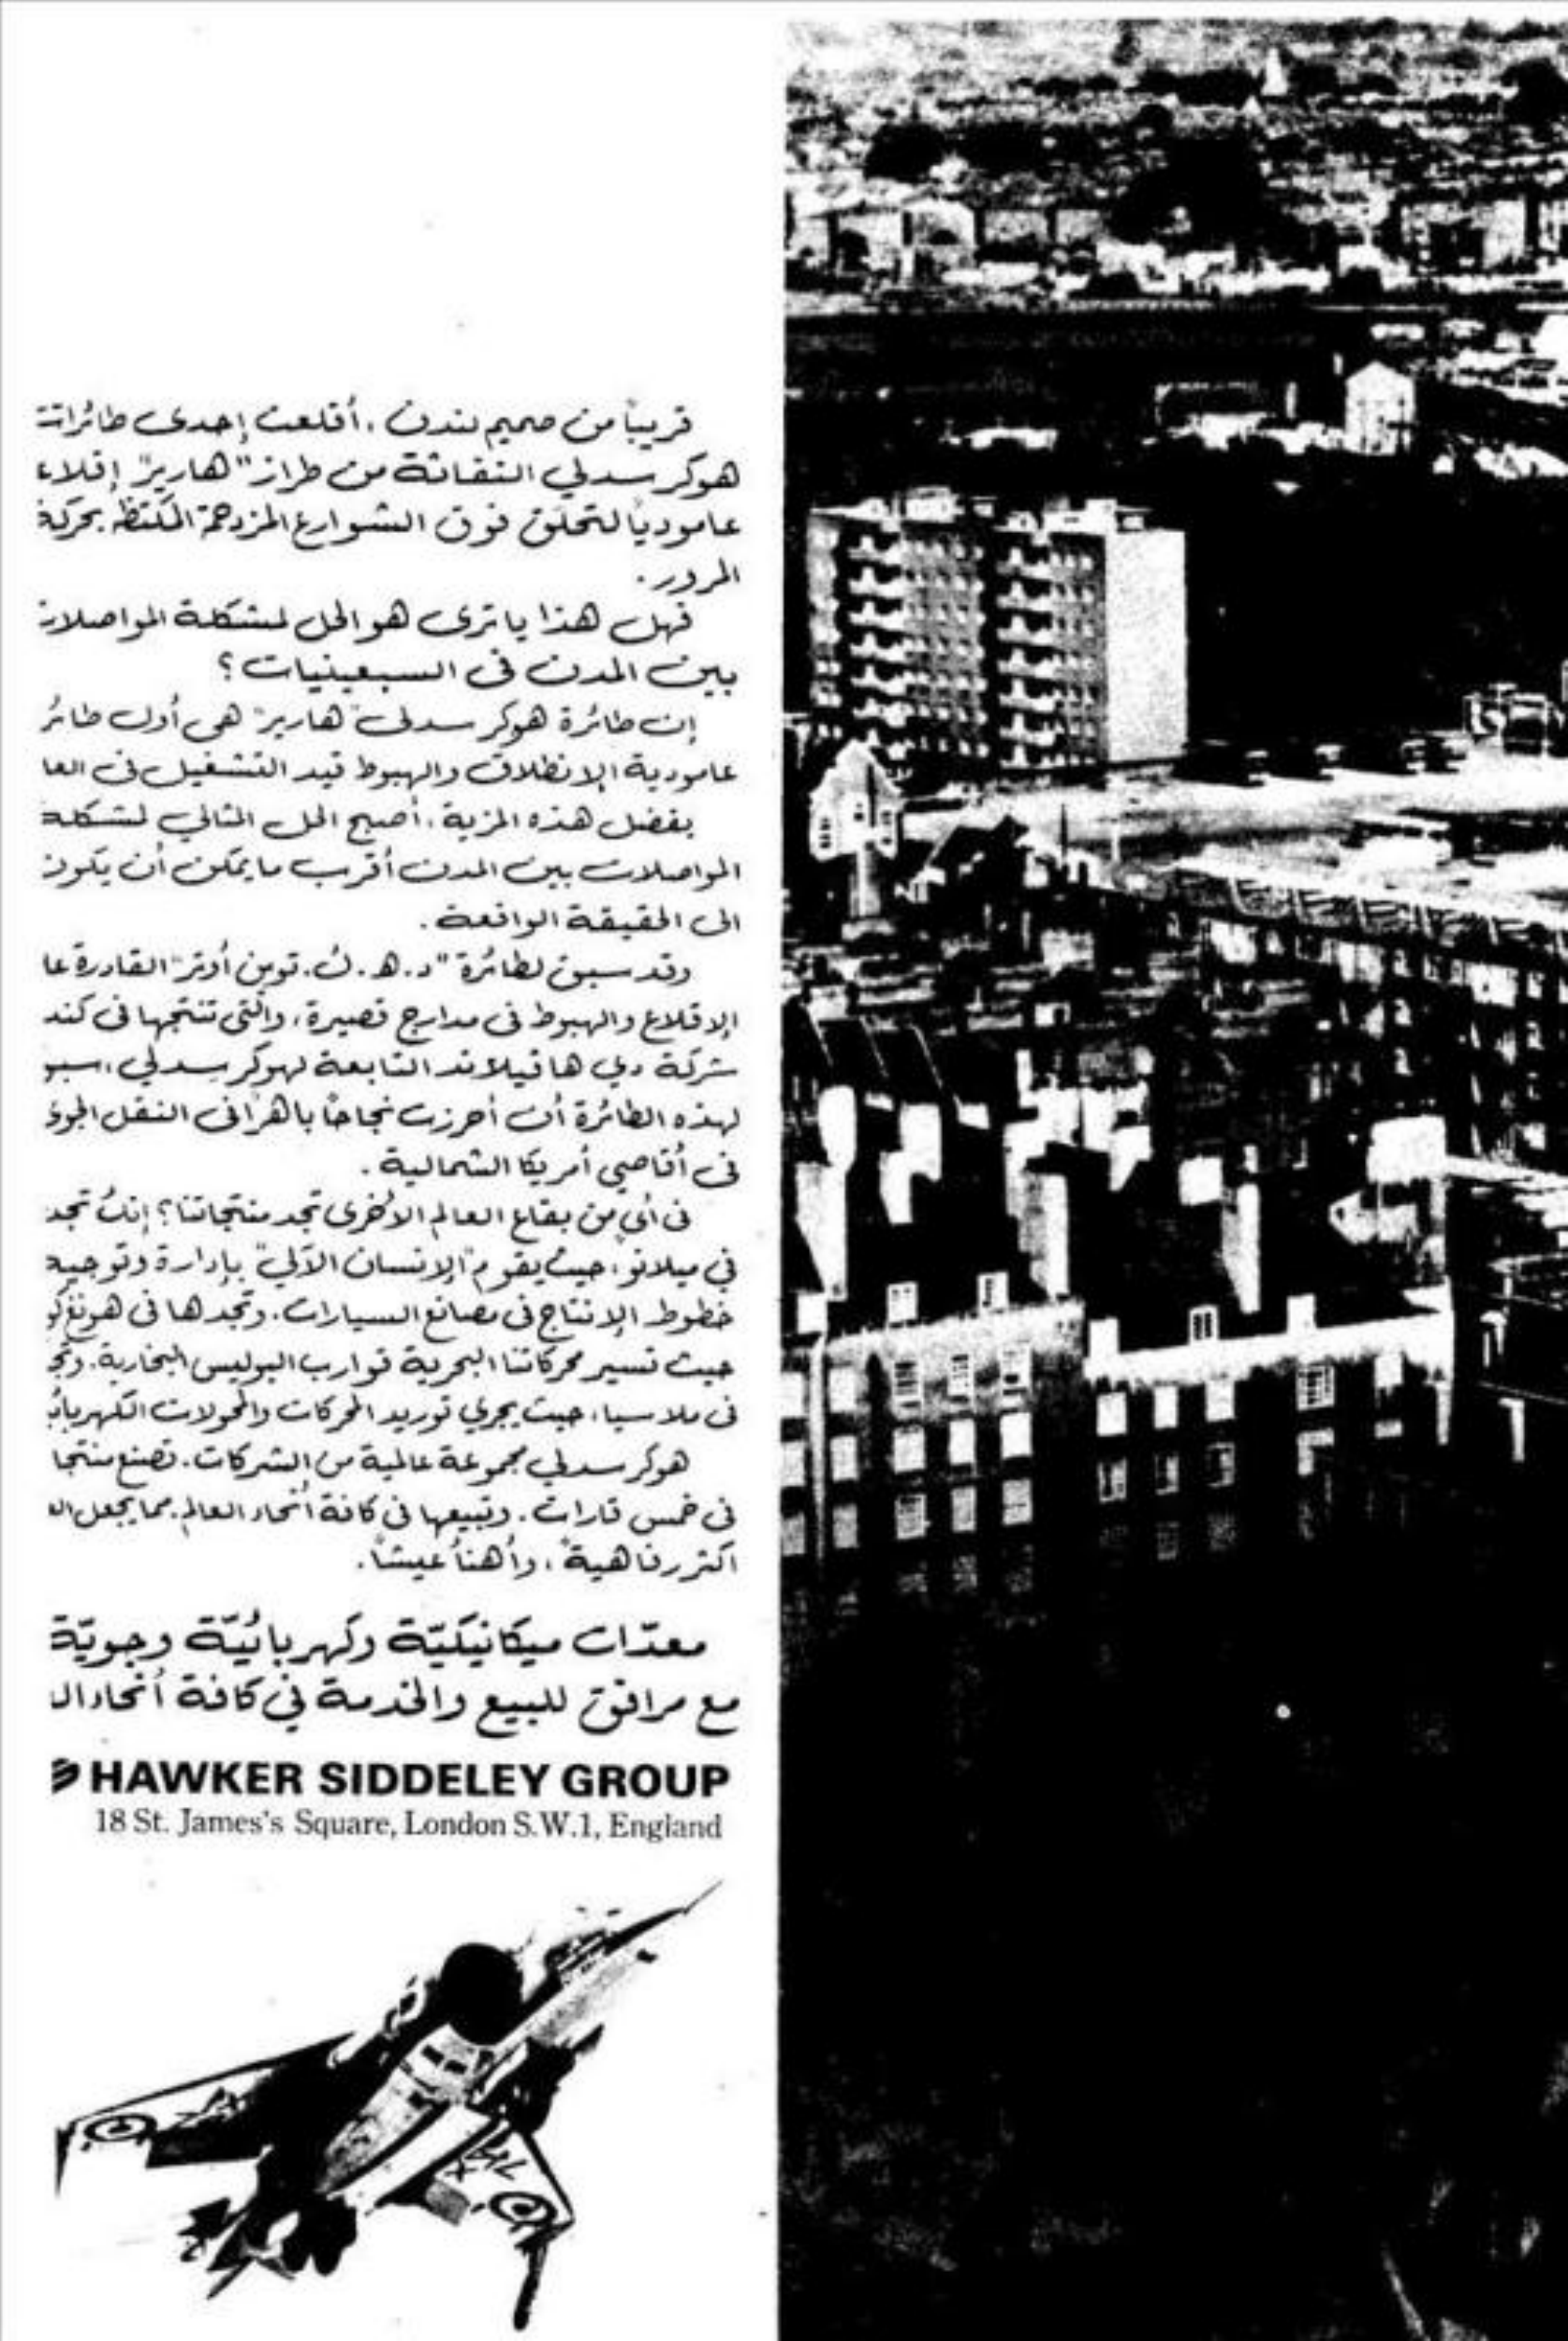 قريباً من صميم لندن ، أقلعت إحدى طائرات
هوكر سدلي النفاثة من طراز "هارير" إقلاع
عامودياً لتحلّق فوق الشوارع المزدحمة المكتظة بحركة
المرور .
فهل هذا يا ترى هو الحل لمشكلة المواصلات
بين المدن في السبعينيات ؟
إن طائرة هوكر سدلي "هارير" هي أول طائر
عامودية الإنطلاق والهبوط قيد التشغيل في العا
بفضل هذه المزية ، أصبح الحل المثالي لمشكلة
المواصلات بين المدن أقرب ما يمكن أن يكون
الى الحقيقة الواقعة .
وقد سبق لطائرة "د . هـ . ك . توين أوتر" القادرة عا
الإقلاع والهبوط في مدارج قصيرة ، والتي تنتجها في كند
شركة دي هافيلاند التابعة لهوكر سدلي ، سبو
لهذه الطائرة أن أحرزت نجاحاً باهراً في النقل الجوي
في أقاصي أمريكا الشمالية .
في أي من بقاع العالم الأخرى تجد منتجاتنا ؟ إنك تجد
في ميلانو ، حيث يقوم "الإنسان الآلي" بإدارة وتوجيه
خطوط الإنتاج في مصانع السيارات . وتجدها في هونغ كو
حيث تسير محركاتنا البحرية قوارب البوليس البخارية . وتج
في ملاسيا ، حيث يجري توريد المحركات والمحولات الكهربائ
هوكر سدلي مجموعة عالمية من الشركات . تصنع منتجا
في خمس قارات . وتبيعها في كافة أنحاء العالم . مما يجعل ال
اكثر رفاهية ، وأهنأ عيشاً .
معدّات ميكانيكيّة وكهربائيّة وجويّة
مع مرافق للبيع والخدمة في كافة أنحاء ال
HAWKER SIDDELEY GROUP
18 St. James's Square, London S.W.1, England